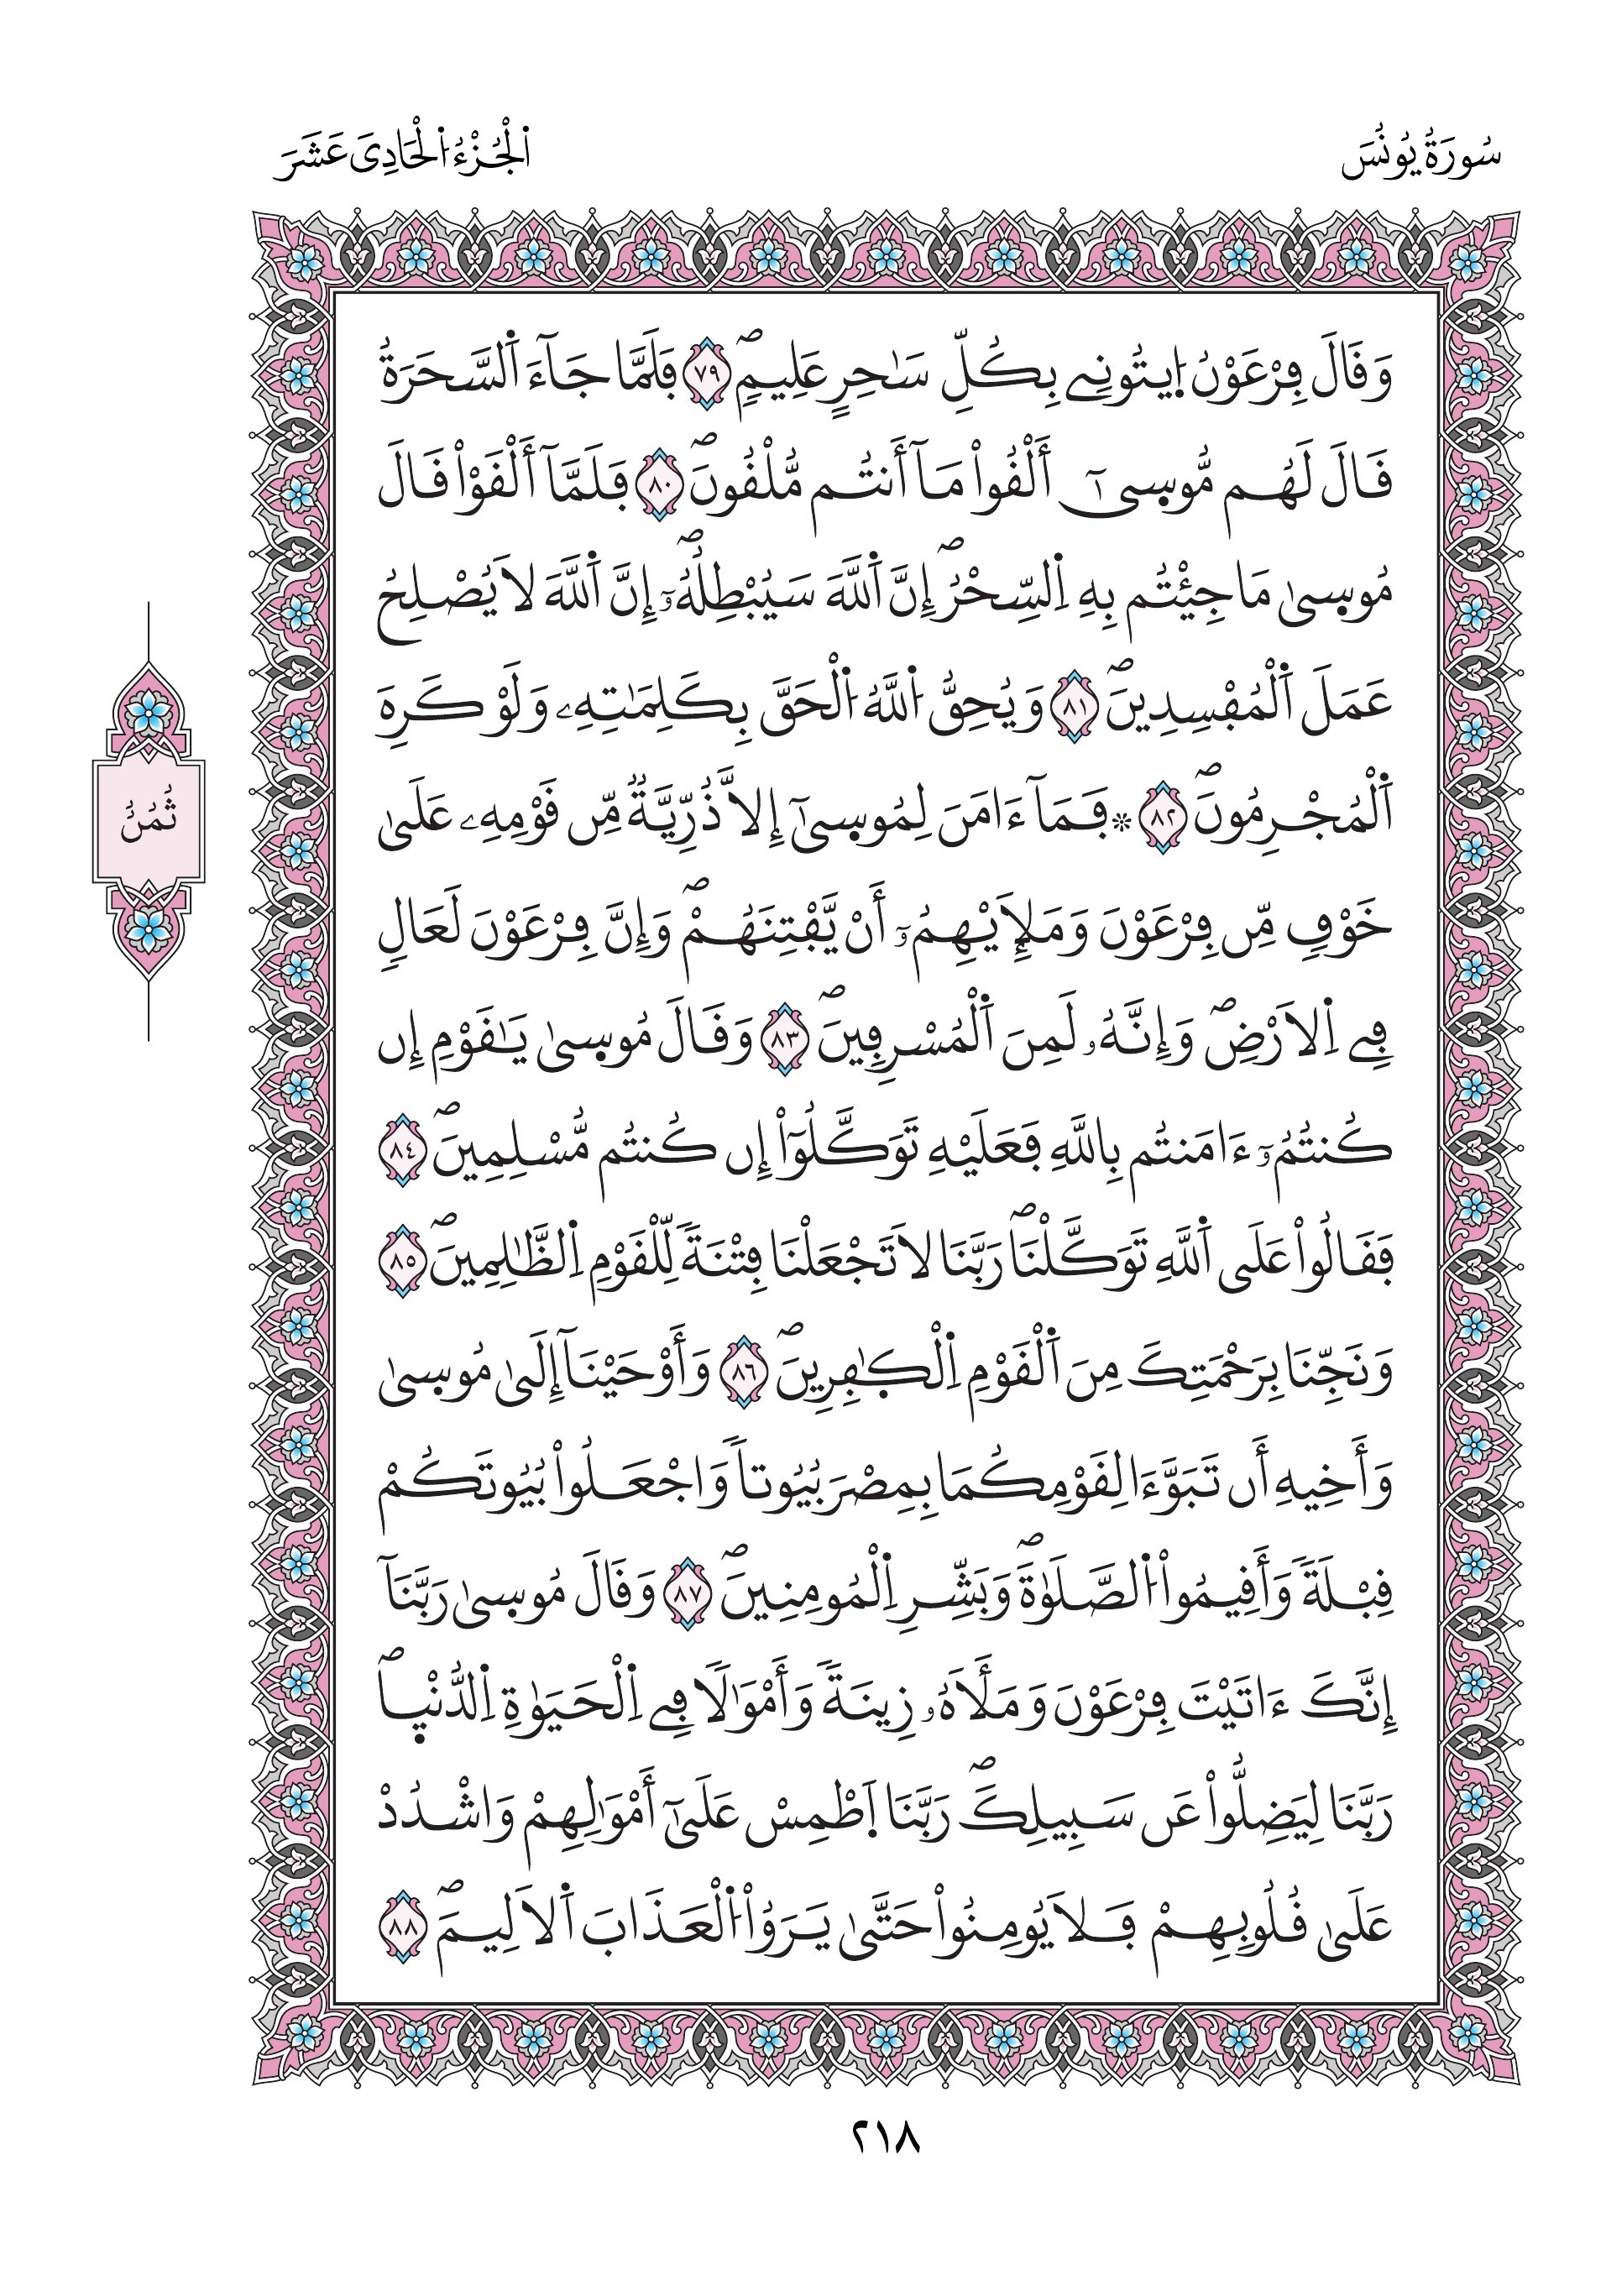 سُورَةُ يُونُسَ
اَ۬لْجُزْءُ اُ۬لْحَادِىَ عَشَرَ
وَقَالَ فِرْعَوْنُ اُ۪يتُونِے بِكُلِّ سَٰحِرٍ عَلِيمٖۖ ٧٩ فَلَمَّا جَآءَ اَ۬لسَّحَرَةُ
قَالَ لَهُم مُّوس۪ىٰٓ أَلْقُواْ مَآ أَنتُم مُّلْقُونَۖ ٨٠ فَلَمَّآ أَلْقَوْاْ قَالَ
مُوس۪ىٰ مَا جِئْتُم بِهِ اِ۬لسِّحْرُۖ إِنَّ اَ۬للَّهَ سَيُبْطِلُهُۥٓۖ إِنَّ اَ۬للَّهَ لَا يُصْلِحُ
عَمَلَ اَ۬لْمُفْسِدِينَۖ ٨١ وَيُحِقُّ اُ۬للَّهُ اُ۬لْحَقَّ بِكَلِمَٰتِهِۦ وَلَوْ كَرِهَ
اَ۬لْمُجْرِمُونَۖ ٨٢ ۞ فَمَآ ءَامَنَ لِمُوس۪ىٰٓ إِلَّا ذُرِّيَّةٞ مِّن قَوْمِهِۦ عَلَىٰ
خَوْفٖ مِّن فِرْعَوْنَ وَمَلَإِيْهِمُۥٓ أَنْ يَّفْتِنَهُمْۖ وَإِنَّ فِرْعَوْنَ لَعَالٖ
فِے اِ۬لَارْضِۖ وَإِنَّهُۥ لَمِنَ اَ۬لْمُسْرِفِينَۖ ٨٣ وَقَالَ مُوس۪ىٰ يَٰقَوْمِ إِن
كُنتُمُۥٓ ءَامَنتُم بِاللَّهِ فَعَلَيْهِ تَوَكَّلُوٓاْ إِن كُنتُم مُّسْلِمِينَۖ ٨٤
فَقَالُواْ عَلَى اَ۬للَّهِ تَوَكَّلْنَاۖ رَبَّنَا لَا تَجْعَلْنَا فِتْنَةٗ لِّلْقَوْمِ اِ۬لظَّٰلِمِينَۖ ٨٥
وَنَجِّنَا بِرَحْمَتِكَ مِنَ اَ۬لْقَوْمِ اِ۬لْكٰ۪فِرِينَۖ ٨٦ وَأَوْحَيْنَآ إِلَىٰ مُوس۪ىٰ
وَأَخِيهِ أَن تَبَوَّءَا لِقَوْمِكُمَا بِمِصْرَ بُيُوتاٗ وَاجْعَلُواْ بُيُوتَكُمْ
قِبْلَةٗ وَأَقِيمُواْ اُ۬لصَّلَوٰةَۖ وَبَشِّرِ اِ۬لْمُومِنِينَۖ ٨٧ وَقَالَ مُوس۪ىٰ رَبَّنَآ
إِنَّكَ ءَاتَيْتَ فِرْعَوْنَ وَمَلَأَهُۥ زِينَةٗ وَأَمْوَٰلٗا فِے اِ۬لْحَيَوٰةِ اِ۬لدُّنْي۪اۖ
رَبَّنَا لِيَضِلُّواْ عَن سَبِيلِكَۖ رَبَّنَا اَ۪طْمِسْ عَلَىٰٓ أَمْوَٰلِهِمْ وَاشْدُدْ
عَلَىٰ قُلُوبِهِمْ فَلَا يُومِنُواْ حَتَّىٰ يَرَوُاْ اُ۬لْعَذَابَ اَ۬لَالِيمَۖ ٨٨
ثُمُنُ
٢١٨